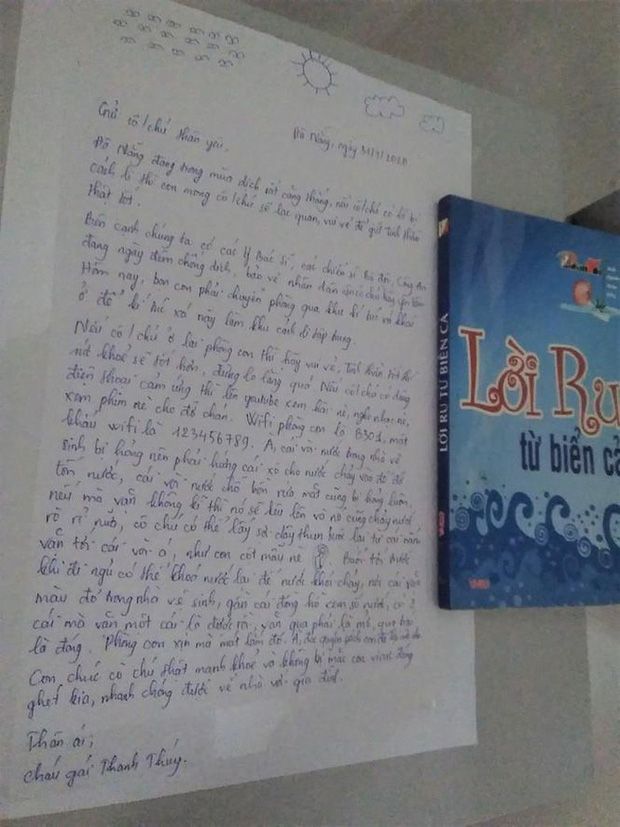 Đà Nẵng, ngày 31/7/2020
Gửi cô/chú thân yêu.
Đà Nẵng đang trong mùa dịch rất căng thẳng, nếu cô/chú có lỡ bị
cách li thì con mong cô/chú sẽ lạc quan, vui vẻ để giữ tinh thần
thật tốt.
Bên cạnh chúng ta có các Y Bác sĩ, các chiến sĩ bộ đội, Công An
đang ngày đêm chống dịch, bảo vệ nhân dân
Hôm nay, bọn con phải chuyển phòng qua khu kí túc xá khác
ở để kí túc xá này làm khu cách li tập trung.
Nếu cô/chú ở lại phòng con thì hãy vui vẻ, tinh thần tốt thì
sức khoẻ sẽ tốt hơn, đừng lo lắng quá! Nếu cô/chú có dùng
điện thoại cảm ứng thì lên youtube xem hài nè, nghe nhạc nè,
xem phim nè cho đỡ chán. Wifi phòng con là B301, mật
khẩu wifi là 123456789. À, cái vòi nước trong nhà vệ
sinh bị hỏng nên phải hứng cái xô cho nước chảy vào đó đỡ
tốn nước, cái vòi nước chỗ bồn rửa mặt cũng bị hỏng luôn,
nếu mà vặn không kĩ thì nó sẽ lưu lên và nó cũng chảy nước
rò rỉ nữa, cô chú có thể lấy sợi dây thun buộc lại từ cái
vặn tới cái vòi ạ, như con cột mẫu nè Buổi tối trước
khi đi ngủ có thể khoá nước lại để nước khỏi chảy, nó cái
màu đỏ trong nhà vệ sinh, gần cái đồng hồ xem số nước, có 2
cái mà vặn một cái là được rồi, vặn qua phải là mở, qua trái
là đóng. Phòng con xịn mà mát lắm đó. À,
Con chúc cô chú thật mạnh khoẻ và không bị mắc con virus đáng
ghét kia, nhanh chóng được về nhà với gia đình.
Thân ái,
Cháu gái Thanh Thúy.
LỜI RU TỪ BIỂN CẢ
Lời Ru
từ biển cả